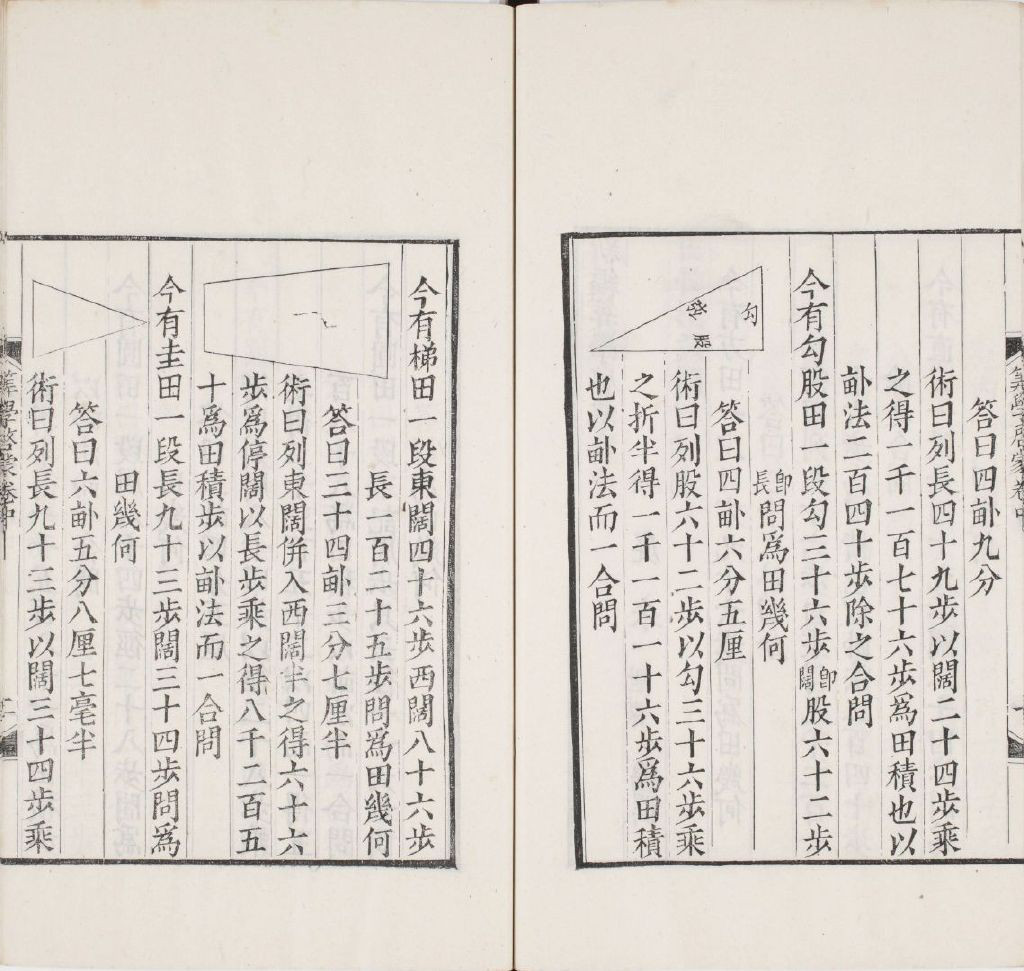 答曰四畝九分
術曰列長四十九步以闊二十四步乘
之得一千一百七十六步為田積也以
畝法二百四十步除之合問
今有勾股田一段勾三十六步即闊股六十二步
即長問為田幾何
答曰四畝六分五厘
術曰列股六十二步以勾三十六步乘
之折半得一千一百一十六步為田積
也以畝法而一合問
勾
弦
股
今有梯田一段東闊四十六步西闊八十六步
長一百二十五步問為田幾何
答曰三十四畝三分七厘半
術曰列東闊併入西闊半之得六十六
步為停闊以長步乘之得八千二百五
十為田積步以畝法而一合問
今有圭田一段長九十三步闊三十四步問為
田幾何
答曰六畝五分八厘七毫半
術曰列長九十三步以闊三十四步乘